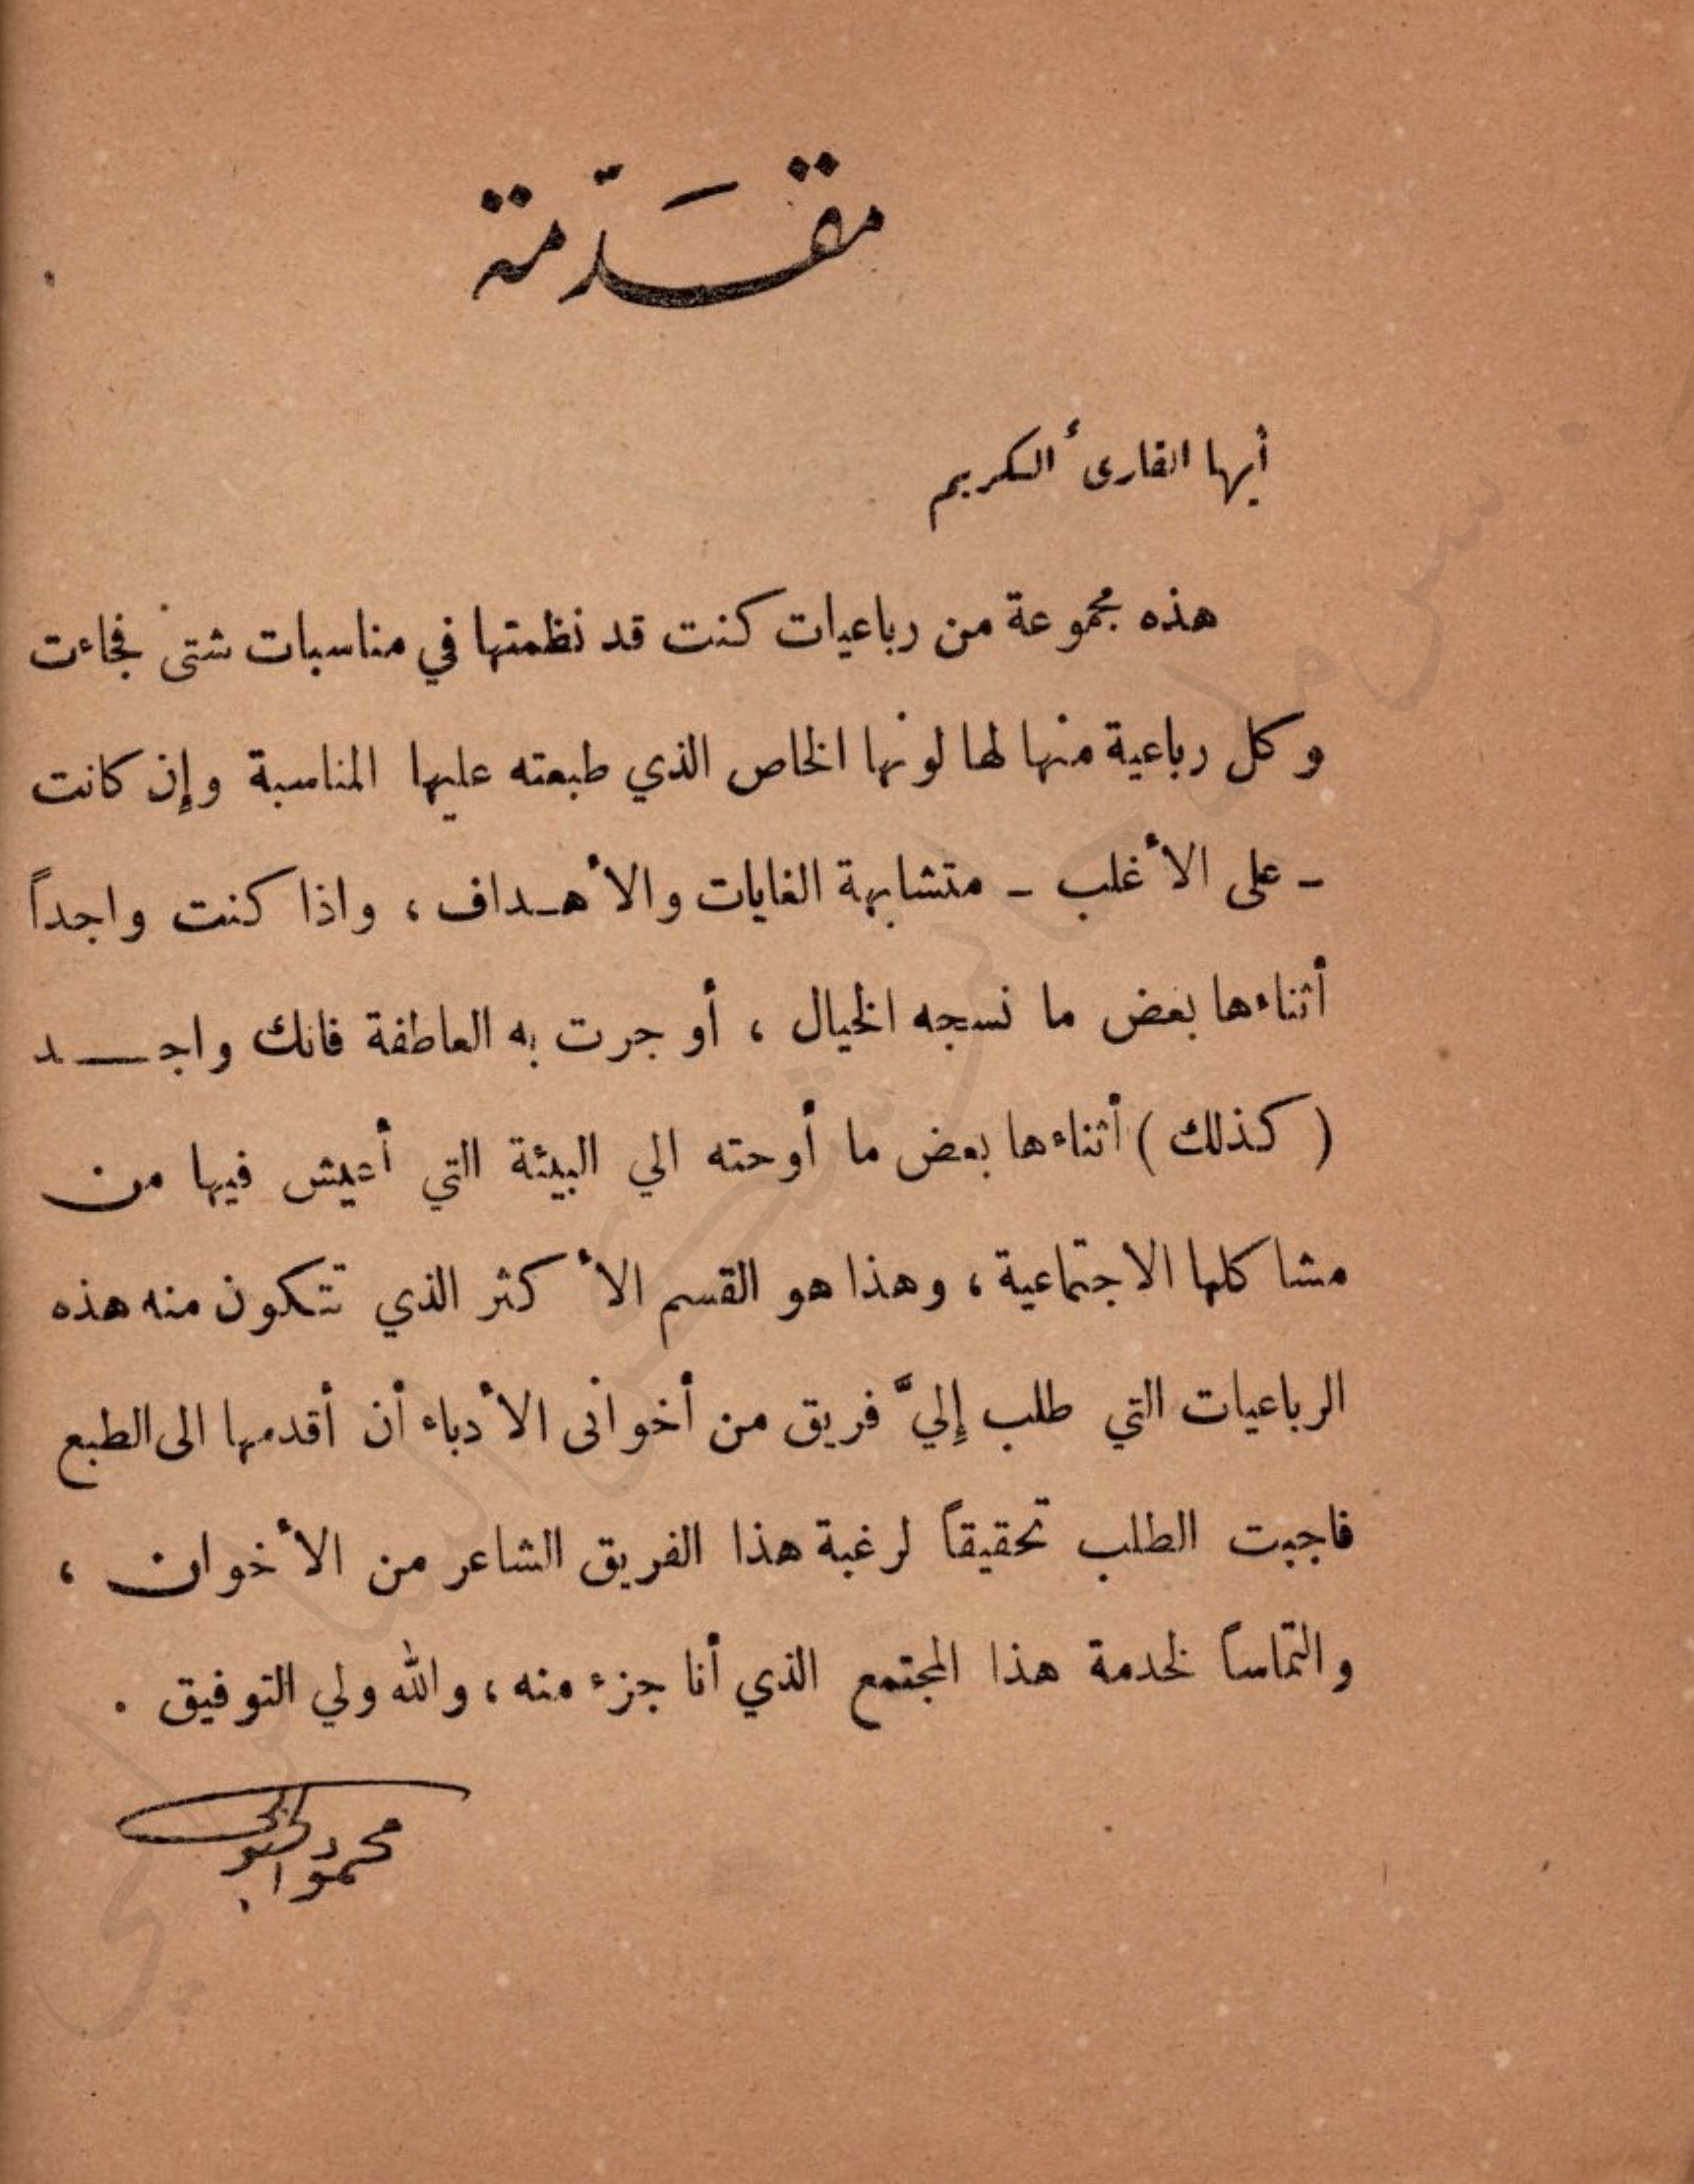 مقدّمة
أيها القارئ الكريم
هذه مجموعة من رباعيات كنت قد نظمتها في مناسبات شتى فجاءت
وكل رباعية منها لها لونها الخاص الذي طبعته عليها المناسبة وإن كانت
- على الأغلب - متشابهة الغايات والأهداف ، واذا كنت واجداً
أثناءها بعض ما نسجه الخيال ، أو جرت به العاطفة فانك واجد
( كذلك ) أثناءها بعض ما أوحته الي البيئة التي أعيش فيها من
مشاكلها الاجتماعية ، وهذا هو القسم الأكثر الذي تتكون منه هذه
الرباعيات التي طلب إليَّ فريق من أخوانى الأدباء أن أقدمها الى الطبع
فاجبت الطلب تحقيقاً لرغبة هذا الفريق الشاعر من الأخوان ،
والتماساً لخدمة هذا المجتمع الذي أنا جزء منه ، والله ولي التوفيق .
محمود الحبوبي